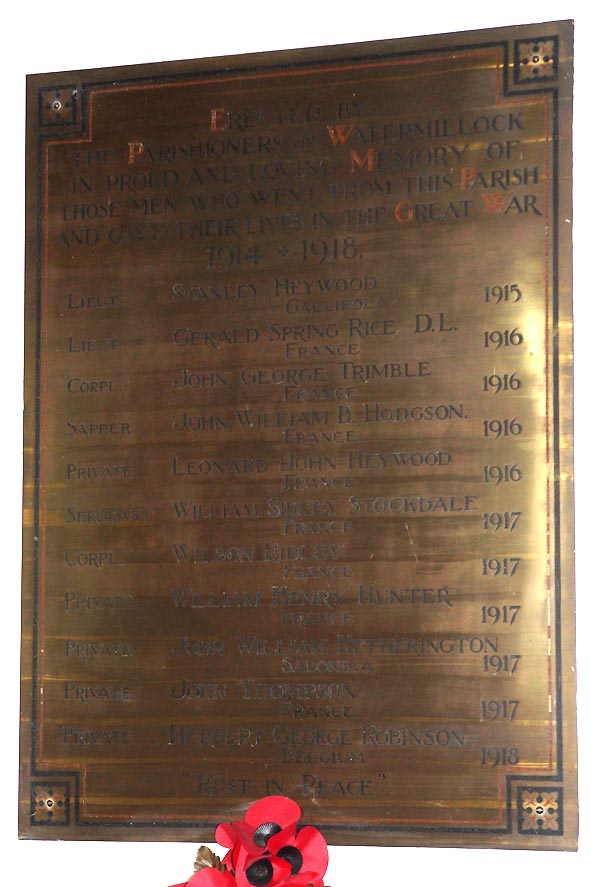 ERECTED BY
THE PARISHIONERS OF WATERMILLOCK
IN PROUD AND LOVING MEMORY OF
THOSE MEN WHO WENT FROM THIS PARISH
AND GAVE THEIR LIVES IN THE GREAT WAR
1914 + 1918.
LIEUT. STANLEY HEYWOOD 1915
GALLIPOLI
LIEUT. GERALD SPRING RICE D.L. 1916
FRANCE
CORPL. JOHN GEORGE TRIMBLE 1916
FRANCE
SAPPER JOHN WILLIAM B. HODGSON. 1916
FRANCE
PRIVATE LEONARD JOHN HEYWOOD 1916
FRANCE
SERGEANT WILLIAM SIDNEY STOCKDALE 1917
FRANCE
CORPL. WILSON RIDLEY 1917
FRANCE
PRIVATE WILLIAM HENRY HUNTER 1917
FRANCE
PRIVATE JOHN WILLIAM HETHERINGTON 1917
SALONIKA
PRIVATE JOHN THOMPSON 1917
FRANCE
PRIVATE HERBERT GEORGE ROBINSON 1918
BELGIUM
"REST IN PEACE"